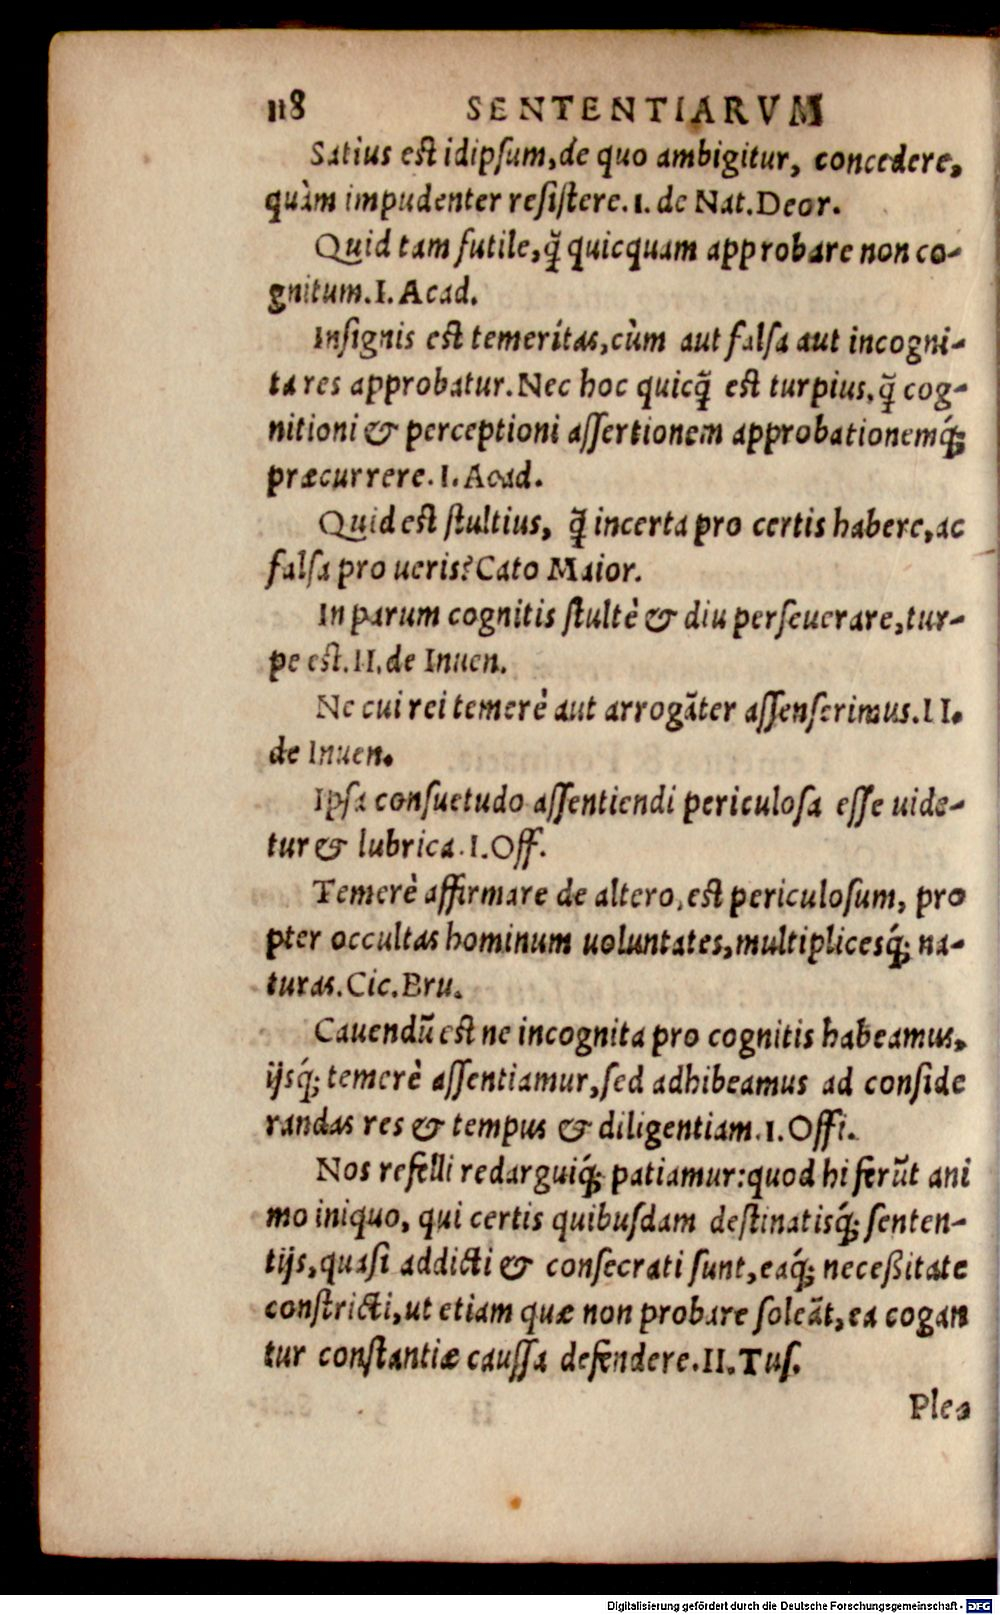 118 SENTENTIARVM
Satius est idipſum, de quo ambigitur, concedere,
quàm impudenter reſiſtere. 1. de Nat. Deor.
Quid tam futile, q̃ quicquam approbare non co-
gnitum. I. Acad.
Inſignis est temeritas, cùm aut falſa aut incogni-
ta res approbatur. Nec hoc quicq̃ est turpius, q̃ cog-
nitioni & perceptioni aſſertionem approbationemq́;
præcurrere. I. Acad.
Quid est ſtultius, q̃ incerta pro certis habere, ac
falſa pro ueris? Cato Maior.
In parum cognitis ſtultè & diu perſeuerare, tur-
pe est. II. de Inuen.
Ne cui rei temerè aut arrogãter aſſenſerimus. II.
de Inuen.
Ipſa conſuetudo aſſentiendi periculoſa eſſe uide-
tur & lubrica. I. Off.
Temerè affirmare de altero, est periculoſum, pro
pter occultas hominum uoluntates, multiplicesq́; na-
turas. Cic. Bru.
Cauendũ est ne incognita pro cognitis habeamus,
ijsq́; temerè aſſentiamur, ſed adhibeamus ad conſide
randas res & tempus & diligentiam. 1. Offi.
Nos refelli redarguiq́; patiamur: quod hi ferũt ani
mo iniquo, qui certis quibuſdam deſtinatisq́; ſenten-
tijs, quaſi addicti & conſecrati ſunt, eaq́; neceßitate
conſtricti, ut etiam quæ non probare ſoleãt, ea cogan
tur conſtantiæ cauſſa defendere. II. Tuſ.
Plea
Digitalisierung gefördert durch die Deutsche Forschungsgemeinschaft - DFG